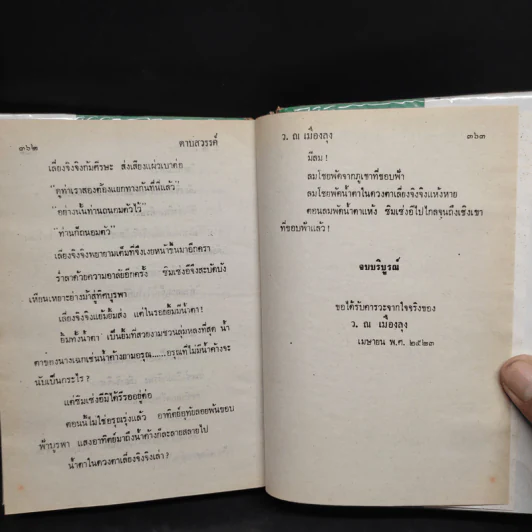 ๓๖๒
ดาบสวรรค์
เลี่ยงจิงจิงก้มศีรษะ ส่งเสียงแผ่วเบาต่อ
"ดูท่าเราสองต้องแยกทางกันที่นี่แล้ว"
"อย่างนั้นท่านถนอมตัวไว้"
"ท่านก็ถนอมตัว"
เลี่ยงจิงจิงพยายามเต็มที่จึงเงยหน้าขึ้นมาอีกครา
ร่ำลาด้วยความอาลัยอีกครั้ง ซิมเซ่งอีจึงสะบัดบัง
เหียนเหยาะย่างม้าสู่ทิศบูรพา
เลี่ยงจิงจิงแย้มยิ้มส่ง แต่ในรอยยิ้มมีน้ำตา!
ยิ้มทั้งน้ำตา เป็นยิ้มที่สวยงามชวนลุ่มหลงที่สุด น้ำ
ตาของนางเฉกเช่นน้ำค้างยามอรุณ......อรุณที่ไม่มีน้ำค้างจะ
นับเป็นกระไร?
แต่ซิมเซ่งอีมิได้รีรออยู่ต่อ
ตอนนี้ไม่ใช่อรุณรุ่งแล้ว อาทิตย์อุทัยลอยพ้นขอบ
ฟ้าบูรพา แสงอาทิตย์มาถึงน้ำค้างก็ละลายสลายไป
น้ำตาในดวงตาเลี่ยงจิงจิงเล่า?
ว. ณ เมืองลุง
๓๖๓
มีลม!
ลมโชยพัดจากภูเขาที่ขอบฟ้า
ลมโชยพัดน้ำตาในดวงตาเลี่ยงจิงจิงแห้งหาย
ตอนลมพัดน้ำตาแห้ง ซิมเซ่งอีไปไกลจนถึงเชิงเขา
ที่ขอบฟ้าแล้ว!
จบบริบูรณ์
ขอได้รับคารวะจากใจจริงของ
ว. ณ เมืองลุง
เมษายน พ.ศ. ๒๕๒๓